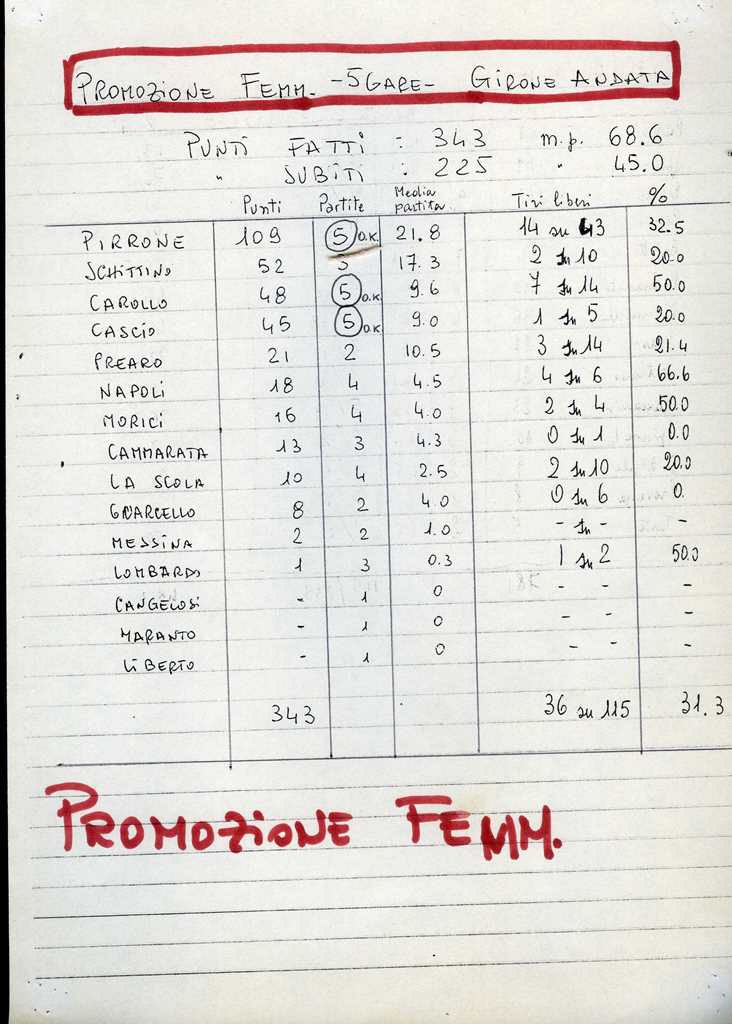 PROMOZIONE FEMM. -5 GARE- GIRONE ANDATA
PUNTI FATTI : 343 m.p. 68.6
" SUBITI : 225 " 45.0
Punti Partite Media partita Tiri liberi %
PIRRONE 109 5 O.K. 21.8 14 su 43 32.5
SCHITTINO 52 3 17.3 2 su 10 20.0
CAROLLO 48 5 O.K. 9.6 7 su 14 50.0
CASCIO 45 5 O.K. 9.0 1 su 5 20.0
PREARO 21 2 10.5 3 su 14 21.4
NAPOLI 18 4 4.5 4 su 6 66.6
MORICI 16 4 4.0 2 su 4 50.0
CAMMARATA 13 3 4.3 0 su 1 0.0
LA SCOLA 10 4 2.5 2 su 10 20.0
GUARCELLO 8 2 4.0 0 su 6 0.
MESSINA 2 2 1.0 - su - -
LOMBARDO 1 3 0.3 1 su 2 50.0
CANGELOSI - 1 0 - - -
MARANTO - 1 0 - - -
LIBERTO - 1 0 - - -
343 36 su 115 31.3
PROMOZIONE FEMM.